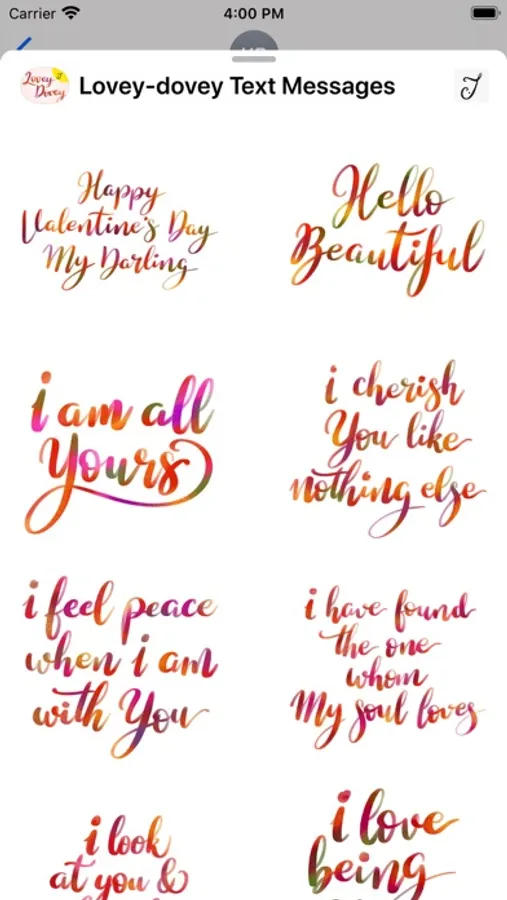 Carrier 4:00 PM
Lovey Dovey
Lovey-dovey Text Messages
Happy
Valentine's Day
My Darling
Hello
Beautiful
i am all
Yours
i cherish
You like
nothing else
i feel peace
when i am
with You
i have found
the one
whom
My soul loves
i look
at you &
i love
being